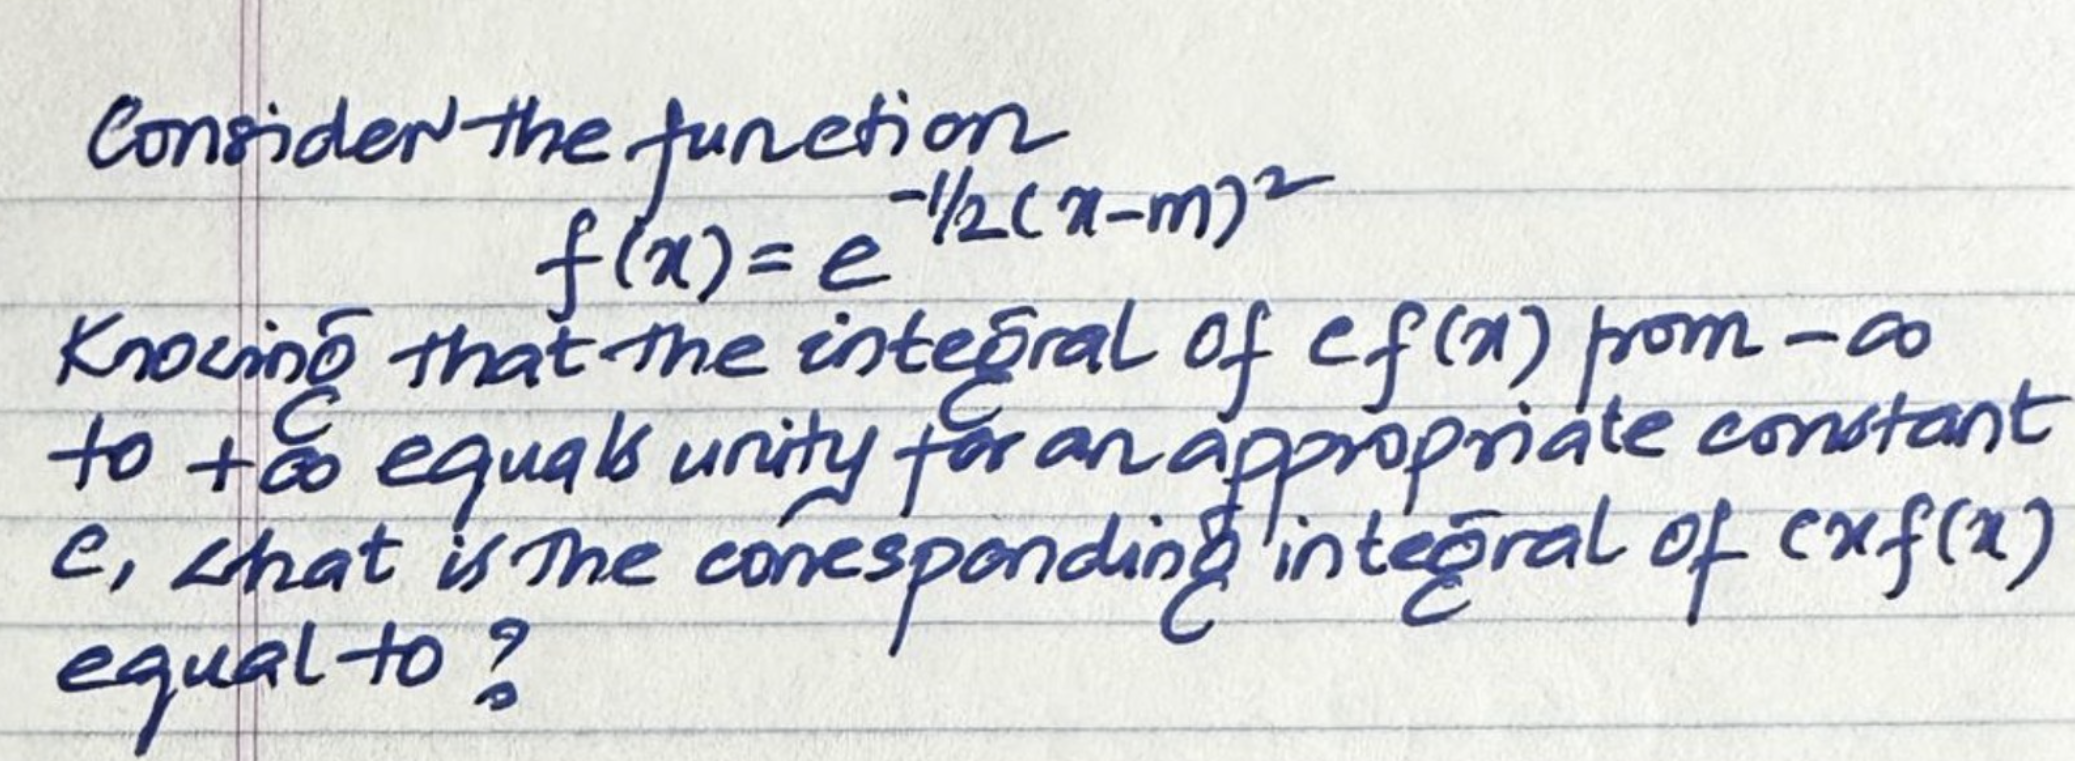 Consider the function
f(x) = e^{-1/2(x-m)^2}
Knowing that the integral of cf(x) from -∞
to +∞ equals unity for an appropriate constant
c, what is the corresponding integral of cxf(x)
equal to?